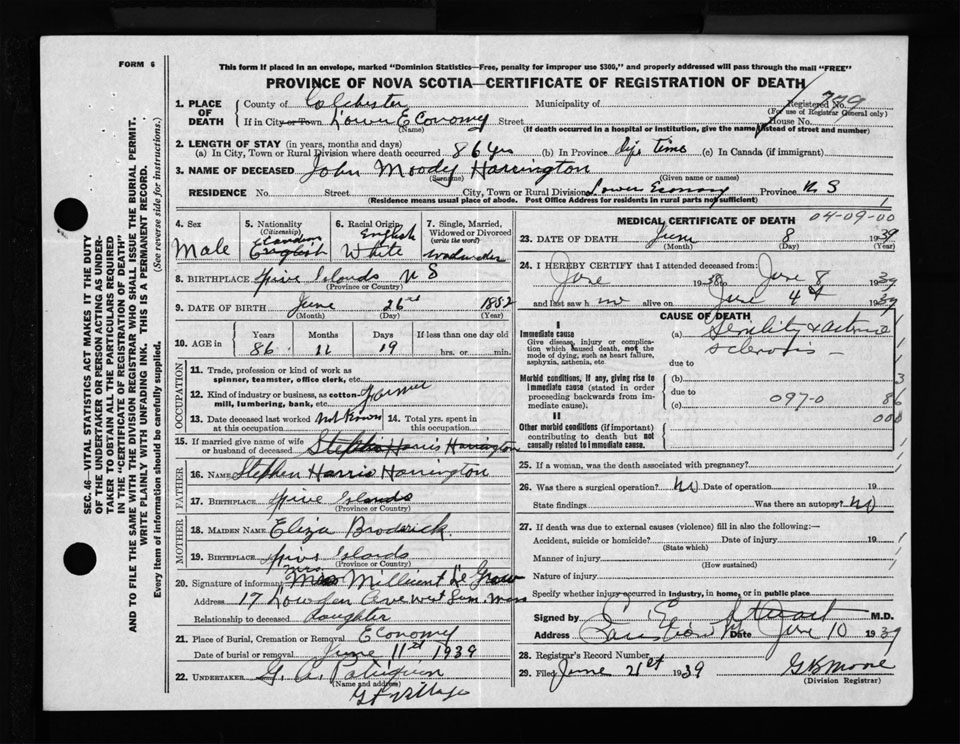 FORM 6
This form if placed in an envelope, marked "Dominion Statistics—Free, penalty for improper use $300," and properly addressed will pass through the mail "FREE"
PROVINCE OF NOVA SCOTIA—CERTIFICATE OF REGISTRATION OF DEATH
SEC. 46—VITAL STATISTICS ACT MAKES IT THE DUTY
OF THE UNDERTAKER OR PERSON ACTING AS UNDER-
TAKER TO OBTAIN ALL THE PARTICULARS REQUIRED
IN THE "CERTIFICATE OF REGISTRATION OF DEATH"
AND TO FILE THE SAME WITH THE DIVISION REGISTRAR WHO SHALL ISSUE THE BURIAL PERMIT.
WRITE PLAINLY WITH UNFADING INK. THIS IS A PERMANENT RECORD.
Every item of information should be carefully supplied. (See reverse side for instructions.)
1. PLACE OF DEATH County of Colchester Municipality of Registered No. 779
(For use of Registrar General only)
If in City or Town Lower Economy Street House No.
(Name) (If death occurred in a hospital or institution, give the name instead of street and number)
2. LENGTH OF STAY (in years, months and days)
(a) In City, Town or Rural Division where death occurred 86 yrs (b) In Province life time (c) In Canada (if immigrant)
3. NAME OF DECEASED John Moody Harrington
(Surname) (Given name or names)
RESIDENCE No. Street City, Town or Rural Division Lower Economy Province N S
(Residence means usual place of abode. Post Office Address for residents in rural parts not sufficient)
4. Sex Male
5. Nationality (Citizenship) English
6. Racial Origin English White
7. Single, Married, Widowed or Divorced (write the word) Widower
8. BIRTHPLACE Five Islands N S
(Province or Country)
9. DATE OF BIRTH June 26 1852
(Month) (Day) (Year)
10. AGE in Years 86 Months 11 Days 19 If less than one day old hrs. or min.
OCCUPATION
11. Trade, profession or kind of work as
spinner, teamster, office clerk, etc.
12. Kind of industry or business, as cotton-
mill, lumbering, bank, etc. Farmer
13. Date deceased last worked at this occupation Not Known 14. Total yrs. spent in this occupation
15. If married give name of wife
or husband of deceased Stephen Harris Harrington
FATHER
16. NAME Stephen Harris Harrington
17. BIRTHPLACE Five Islands
(Province or Country)
MOTHER
18. MAIDEN NAME Eliza Broderick
19. BIRTHPLACE Five Islands
(Province or Country)
20. Signature of informant Mrs Millicent
Address 17 Ave West Mass
Relationship to deceased daughter
21. Place of Burial, Cremation or Removal Economy
Date of burial or removal June 11 1939
22. UNDERTAKER G. A.
(Name and address)
Village
MEDICAL CERTIFICATE OF DEATH
04-09-00
23. DATE OF DEATH June 8 1939
(Month) (Day) (Year)
24. I HEREBY CERTIFY that I attended deceased from:
June 1938 to June 8 1939
and last saw him alive on June 4 1939
CAUSE OF DEATH
I
Immediate cause
Give disease, injury or complica-
tion which caused death, not the
mode of dying, such as heart failure,
asphyxia, asthenia, etc.
(a) Senility & arterio
sclerosis
due to
Morbid conditions, if any, giving rise to
immediate cause (stated in order
proceeding backwards from im-
mediate cause).
(b)
due to
(c) 097-0
3
86
000
II
Other morbid conditions (if important)
contributing to death but not
causally related to immediate cause.
25. If a woman, was the death associated with pregnancy?
26. Was there a surgical operation? No Date of operation 19
State findings Was there an autopsy? No
27. If death was due to external causes (violence) fill in also the following:—
Accident, suicide or homicide? Date of injury 19
(State which)
Manner of injury
(How sustained)
Nature of injury
Specify whether injury occurred in Industry, in home, or in public place
Signed by Stuart M.D.
Address Date June 10 1939
28. Registrar's Record Number
29. Filed June 21st 1939 Moore
(Division Registrar)